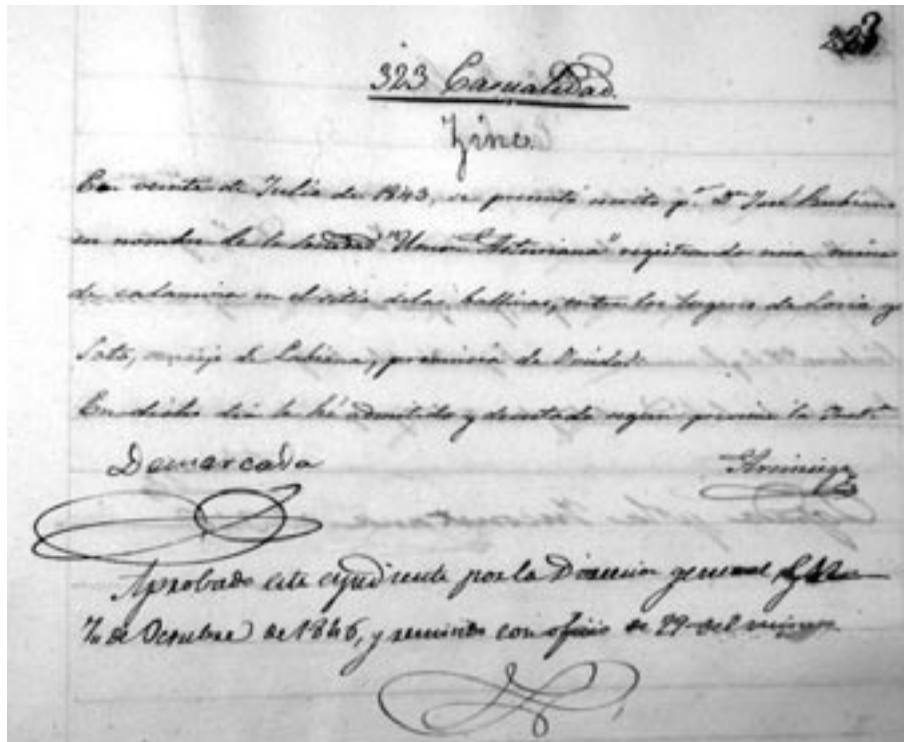 323
323 Casualidad.
Zinc.
En veinte de Julio de 1843, se presentó escrito pr. Dn. José
en nombre de la Sociedad "Union Asturiana" registrando una mina
de calamina en el sitio de las entre los lugares de y
Soto, concejo de provincia de Oviedo.
En dicho dia le hé admitido y decretado segun previene la Instn.
Demarcada
Aprobado este espediente por la Direccion general
de Octubre de 1846, y remitido con oficio de 29 del mismo